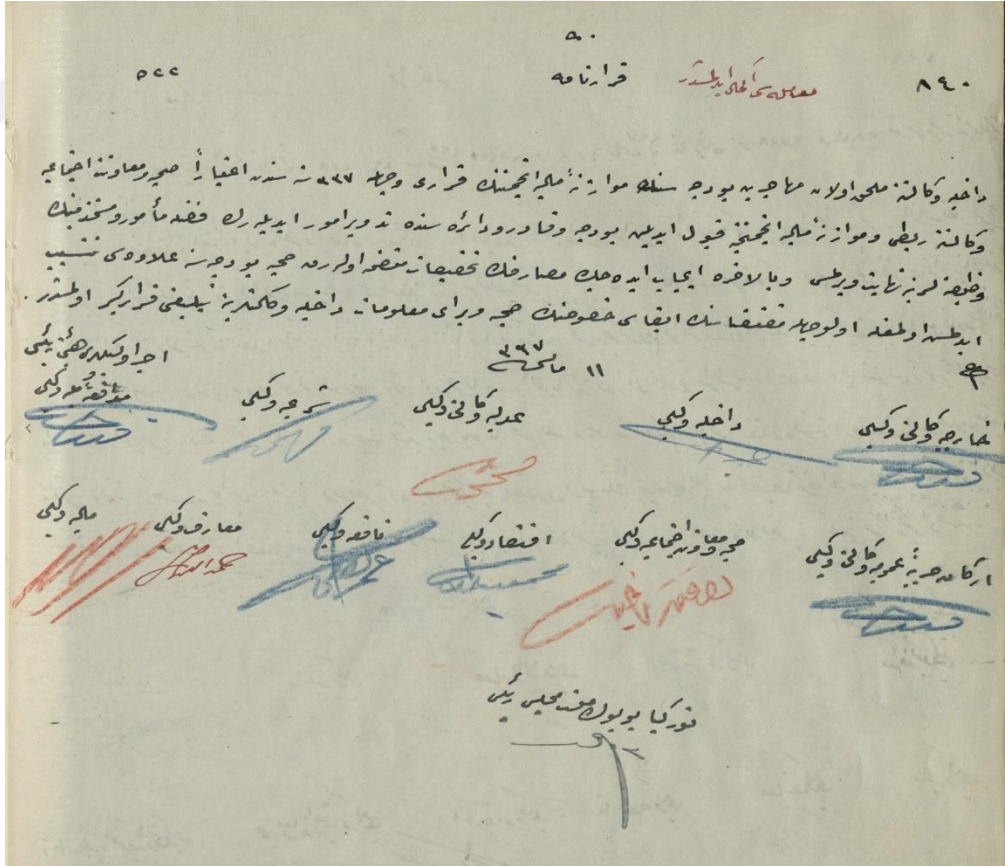 ٨٤٠
قرارنامه
٥٢٢
داخليه وكالتنه ملحق اولان مهاجرين بودجه سنك موازنۀ ماليه انجمننك قرارى وجهله ٣٣٧ سنه سندن اعتباراً صحيه ومعاونت اجتماعيه
وكالتنه ربطى وموازنۀ ماليه انجمننجه قبول ايديلن بودجه وقادرو دائره سنده تدوير امور ايديله رك فضله مأمور ومستخدمينك
وظيفه لرينه نهايت ويرلمسى وبالاخره ايجاب ايده جك مصارفك تخصيصات منضمه اوله رق صحيه بودجه سنه علاوه سى تنسيب
ايدلمش اولمغله اولوجهله مقتضاسنك ايفاسى خصوصنك صحيه وبراى معلومات داخليه وكالتلرينه تبليغى قرارگير اولمشدر.
١١ مارت ٣٣٧
اجرا وكيللرى هيئتى رئيسى
ومدافعۀ مليه وكيلى
شرعيه وكيلى
عدليه وكالتى وكيلى
داخليه وكيلى
خارجيه وكالتى وكيلى
ماليه وكيلى
معارف وكيلى
نافعه وكيلى
اقتصاد وكيلى
صحيه ومعاونت اجتماعيه وكيلى
اركان حربيۀ عموميه وكالتى وكيلى
توركيا بويوك ملت مجلسى رئيسى